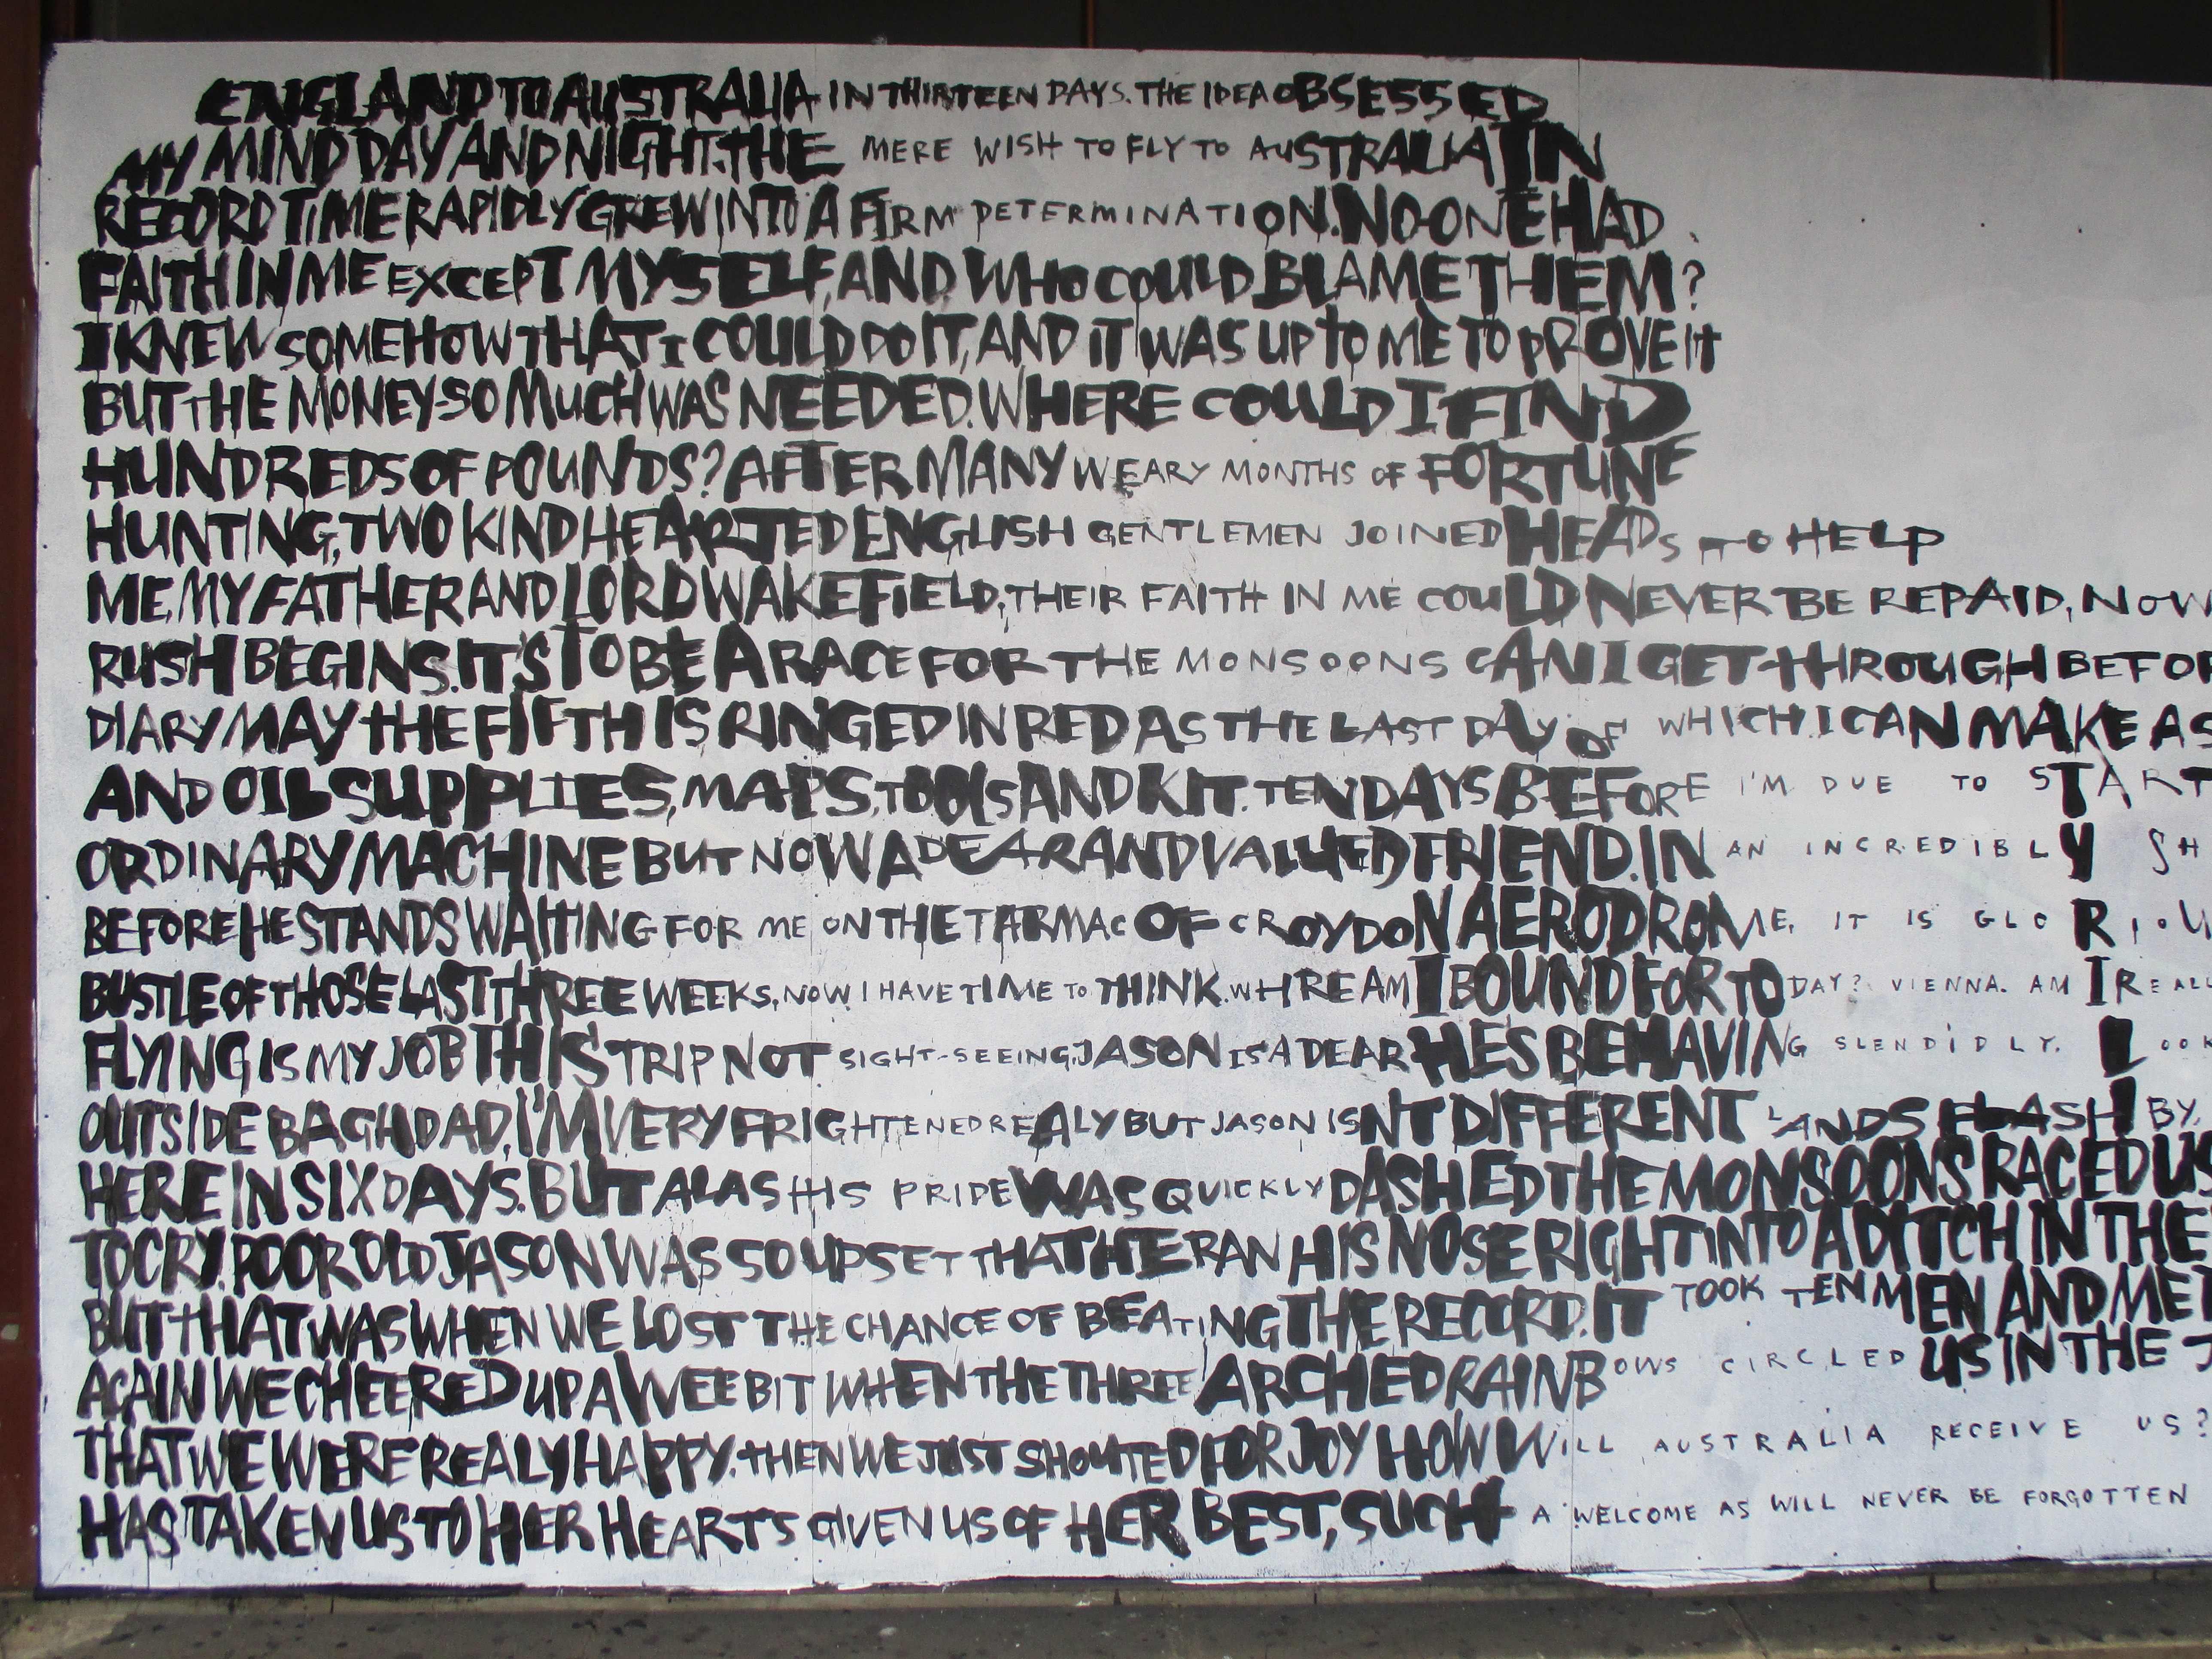 ENGLAND TO AUSTRALIA IN THIRTEEN DAYS. THE IDEA OBSESSED
MY MIND DAY AND NIGHT. THE MERE WISH TO FLY TO AUSTRALIA IN
RECORD TIME RAPIDLY GREW INTO A FIRM DETERMINATION. NO-ONE HAD
FAITH IN ME EXCEPT MYSELF, AND WHO COULD BLAME THEM?
I KNEW SOMEHOW THAT I COULD DO IT, AND IT WAS UP TO ME TO PROVE IT
BUT THE MONEY-SO MUCH WAS NEEDED. WHERE COULD I FIND
HUNDREDS OF POUNDS? AFTER MANY WEARY MONTHS OF FORTUNE
HUNTING, TWO KIND HEARTED ENGLISH GENTLEMEN JOINED HEADS TO HELP
ME, MY FATHER AND LORD WAKEFIELD, THEIR FAITH IN ME COULD NEVER BE REPAID, NOW
RUSH BEGINS. IT'S TO BE A RACE FOR THE MONSOONS CAN I GET THROUGH BEFOR
DIARY MAY THE FIFTH IS RINGED IN RED AS THE LAST DAY OF WHICH I CAN MAKE A S
AND OIL SUPPLIES, MAPS, TOOLS AND KIT. TEN DAYS BEFORE I'M DUE TO START
ORDINARY MACHINE BUT NOW A DEAR AND VALUED FRIEND. IN AN INCREDIBLY SH
BEFORE HE STANDS WAITING FOR ME ON THE TARMAC OF CROYDON AERODROME, IT IS GLORIOU
BUSTLE OF THOSE LAST THREE WEEKS, NOW I HAVE TIME TO THINK. WHRE AM I BOUND FOR TODAY? VIENNA. AM I REALL
FLYING IS MY JOB THIS TRIP NOT SIGHT-SEEING, JASON IS A DEAR HE'S BEHAVING SLENDIDLY. LOOK
OUTSIDE BAGHDAD, I'M VERY FRIGHTENED REALY BUT JASON ISNT DIFFERENT LANDS FLASH BY,
HERE IN SIX DAYS. BUT ALAS HIS PRIDE WAS QUICKLY DASHED THE MONSOONS RACED US
TO CRY. POOR OLD JASON WAS SO UPSET THAT HE RAN HIS NOSE RIGHT INTO A DITCH IN THE
BUT THAT WAS WHEN WE LOST THE CHANCE OF BEATING THE RECORD. IT TOOK TEN MEN AND ME
AGAIN WE CHEERED UP A WEE BIT WHEN THE THREE ARCHED RAINBOWS CIRCLED US IN THE
THAT WE WERE REALY HAPPY. THEN WE JUST SHOUTED FOR JOY HOW WILL AUSTRALIA RECEIVE US?
HAS TAKEN US TO HER HEARTS GIVEN US OF HER BEST, SUCH A WELCOME AS WILL NEVER BE FORGOTTEN